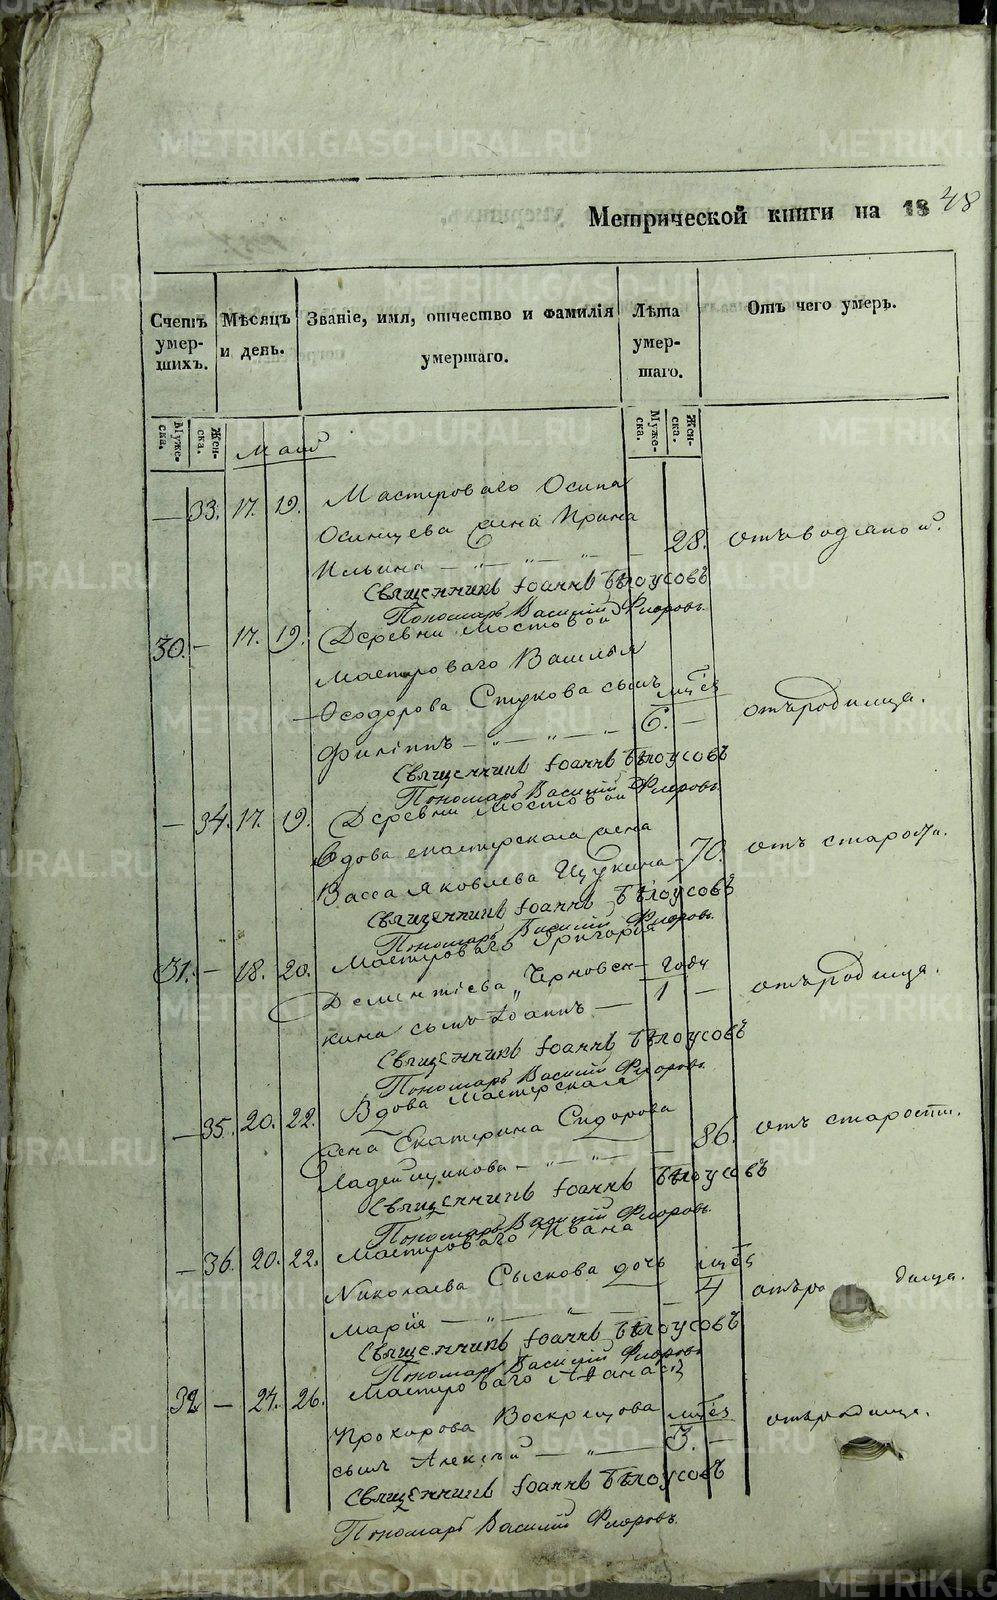 Метрической книги на 1848
Счетъ умер-шихъ.
Мѣсяцъ и день.
Званіе, имя, отчество и фамилія умершаго.
Лѣта умер-шаго.
Отъ чего умеръ.
Муже-ска.
Жен-ска.
Муже-ска.
Жен-ска.
Май
— 33. 17. 19. Мастероваго Осипа
Осинцева жена Ирина
Ильина — „ — „ — „ — 28. отъ водяной.
Священникъ Іоаннъ Бѣлоусовъ
Пономарь Василій Флоровъ
30. — 17. 19. Деревни Мостовой
Мастероваго Василья
Ѳеодорова Стукова сынъ мцѣв
Филіппъ — „ — „ — „ 6. — отъ родимца.
Священникъ Іоаннъ Бѣлоусовъ
Пономарь Василій Флоровъ
— 34. 17. 19. Деревни Мостовой
Вдова мастерская жена
Васса Яковлева Щукина 70. отъ старости.
Священникъ Іоаннъ Бѣлоусовъ
Пономарь Василій Флоровъ
31. — 18. 20. Мастероваго Григорія
Дементіева году
кина сынъ Іоаннъ — 1 — отъ родимца.
Священникъ Іоаннъ Бѣлоусовъ
Пономарь Василій Флоровъ
— 35. 20. 22. Вдова Мастерская
жена Екатерина Сидорова
Ладейщикова — „ — „ — 86. отъ старости.
Священникъ Іоаннъ Бѣлоусовъ
Пономарь Василій Флоровъ
— 36. 20. 22. Мастероваго Ивана
Николаева Сыскова дочь мцѣв
Марія — „ — „ — 4 отъ родимца.
Священникъ Іоаннъ Бѣлоусовъ
Пономарь Василій Флоровъ
32 — 24. 26. Мастероваго Аѳанасія
Прохорова Воскрецова мцѣв
сынъ Алексѣй — „ — 3. — отъ родимца.
Священникъ Іоаннъ Бѣлоусовъ
Пономарь Василій Флоровъ
METRIKI.GASO-URAL.RU